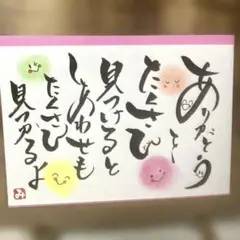 ありがとう
と
たくさん
見つけると
しあわせも
たくさん
見つかるよ